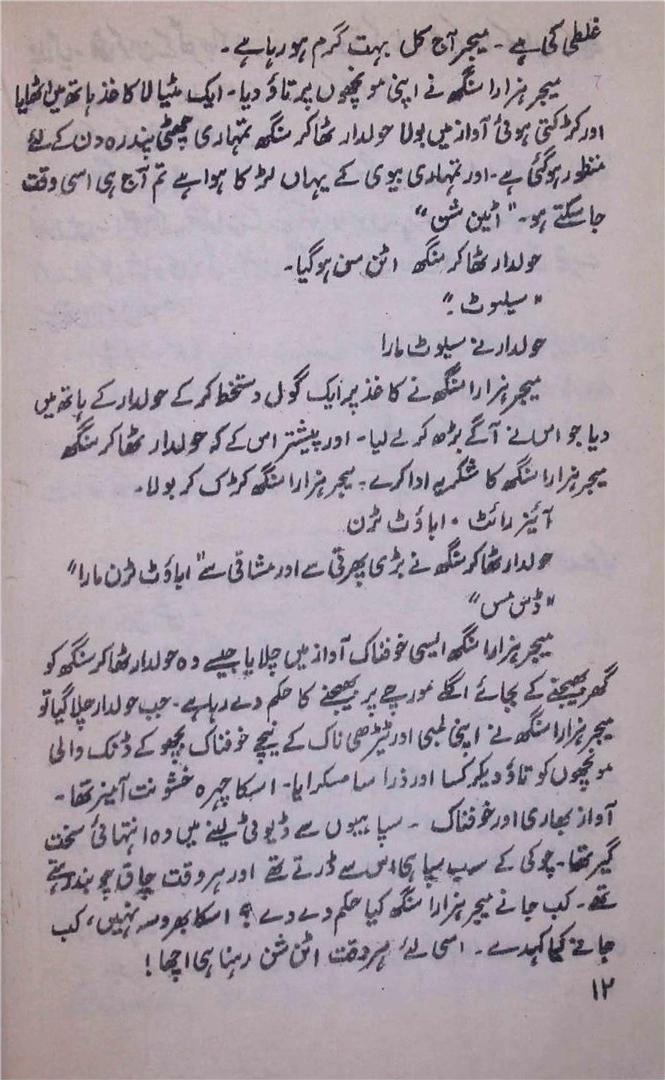 غلطی کی ہے۔ میجر آج کل بہت گرم ہو رہا ہے۔
میجر ہزارا سنگھ نے اپنی مونچھوں پر تاؤ دیا۔ ایک مٹیالا کاغذ ہاتھ میں اٹھایا
اور کڑکتی ہوئی آواز میں بولا حولدار ٹھاکر سنگھ تمہاری چھٹی پندرہ دن کے لئے
منظور ہو گئی ہے۔ اور تمہاری بیوی کے یہاں لڑکا ہوا ہے تم آج ہی اسی وقت
جا سکتے ہو۔ "اٹین شن"
حولدار ٹھاکر سنگھ اٹن سن ہو گیا۔
"سیلوٹ۔"
حولدار نے سیلوٹ مارا
میجر ہزارا سنگھ نے کاغذ پر ایک گول دستخط کر کے حولدار کے ہاتھ میں
دیا جو اس نے آگے بڑھ کر لے لیا۔ اور پیشتر اس کے کہ حولدار ٹھاکر سنگھ
میجر ہزارا سنگھ کا شکریہ ادا کرے۔ میجر ہزارا سنگھ کڑک کر بولا۔
آئیز رائٹ۔ اباؤٹ ٹرن
حولدار ٹھاکر سنگھ نے بڑی پھرتی سے اور مشاقی سے "اباؤٹ ٹرن مارا"
"ڈس مس"
میجر ہزارا سنگھ ایسی خوفناک آواز میں چلایا جیسے وہ حولدار ٹھاکر سنگھ کو
گھر بھیجنے کے بجائے اگلے مورچے پر بھیجنے کا حکم دے رہا ہے۔ جب حولدار چلا گیا تو
میجر ہزارا سنگھ نے اپنی لمبی اور ٹیڑھی ناک کے نیچے خوفناک بچھو کے ڈنک والی
مونچھوں کو تاؤ دیکر کسا اور ذرا سا مسکرایا۔ اسکا چہرہ خشونت آمیز تھا۔
آواز بھاری اور خوفناک۔ سپاہیوں سے ڈیوٹی لینے میں وہ انتہائی سخت
گیر تھا۔ چوکی کے سب سپاہی اس سے ڈرتے تھے اور ہر وقت چاق چوبند رہتے
تھے۔ کب جانے میجر ہزارا سنگھ کیا حکم دے دے؟ اسکا بھروسہ نہیں، کب
جانے کیا کہدے۔ اسی لئے ہر وقت اٹن شن رہنا ہی اچھا!
۱۲